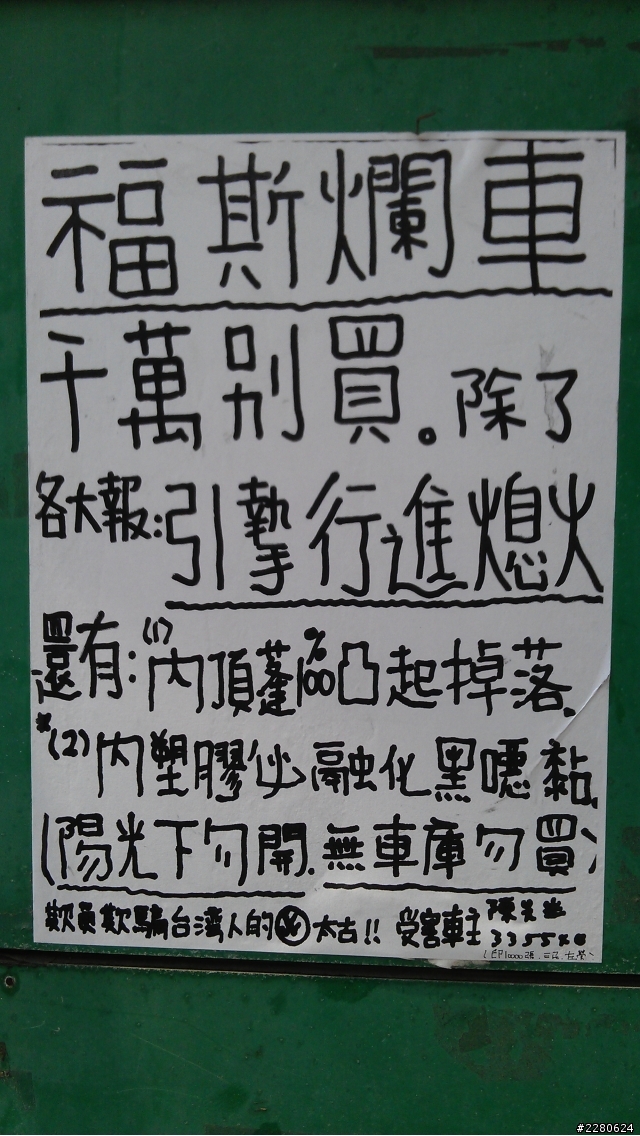 福斯爛車
千萬别買。除了
各大報:引擎行進熄火
還有:(1)內頂蓬100%凸起掉落。
*(2)內塑膠必融化黑嘿黏,
(陽光下勿開.無車庫勿買)
欺負欺騙台灣人的 太古!! 受害車主 陳先生
3355
(印10000張.三民.左營)
#2280624